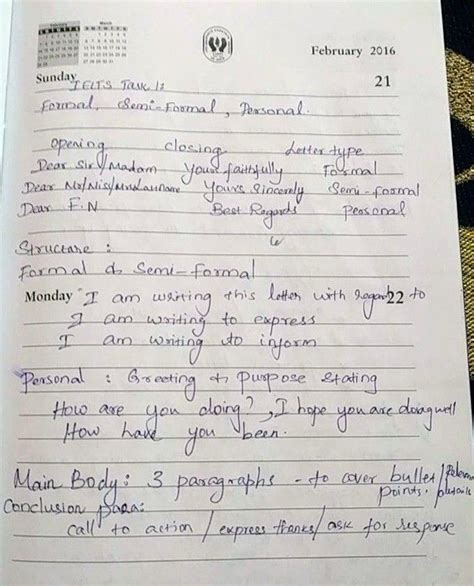 February
March
February 2016
Sunday
21
IELTS Task 1:
Formal, Semi-Formal, Personal.
Opening closing Letter type
Dear Sir/Madam Yours faithfully Formal
Dear Mr/Mis/Mrs Lastname Yours Sincerely Semi-formal
Dear F.N Best Regards Personal
Structure :
Formal & Semi-Formal
Monday "I am writing this letter with regard to
22
I am writing to express
I am writing to inform
Personal : Greeting & Purpose stating
How are you doing?, I hope you are doing well
How have you been.
Main Body: 3 paragraphs - to cover bullet/Relevant
points. details
Conclusion para:
call to action / express thanks/ ask for response